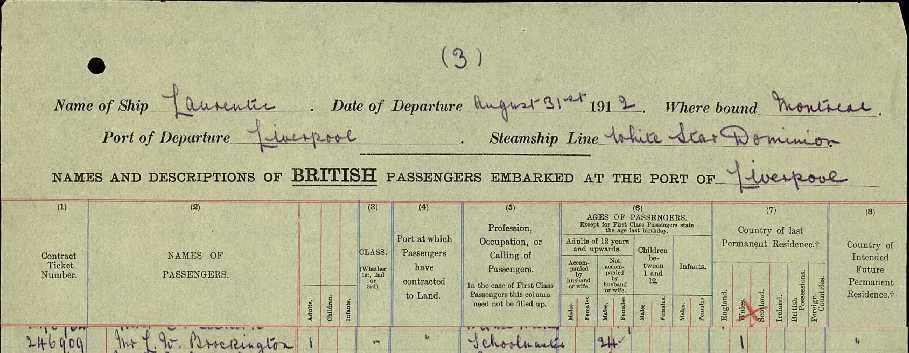 (3)
Name of Ship Laurentic . Date of Departure August 31st 1912. Where bound Montreal.
Port of Departure Liverpool . Steamship Line White Star Dominion
NAMES AND DESCRIPTIONS OF BRITISH PASSENGERS EMBARKED AT THE PORT OF Liverpool
(1) (2) (3) (4) (5) (6) (7) (8)
Contract Ticket Number.
NAMES OF PASSENGERS.
Adults.
Children.
Infants.
CLASS.
(Whether 1st, 2nd or 3rd)
Port at which Passengers have contracted to Land.
Profession, Occupation, or Calling of Passengers.
In the case of First Class Passengers this column need not be filled up.
AGES OF PASSENGERS.
Except for First Class Passengers state the age last birthday.
Adults of 12 years and upwards.
Accompanied by husband or wife.
Not accompanied by husband or wife.
Children between 1 and 12.
Infants.
Males. Females. Males. Females. Males. Females. Males. Females.
Country of last Permanent Residence.†
England.
Wales.
Scotland.
Ireland.
British Possessions.
Foreign Countries.
Country of Intended Future Permanent Residence.†
246909 Mr L. W. Brockington 1 " " Schoolmaster 24 1 "